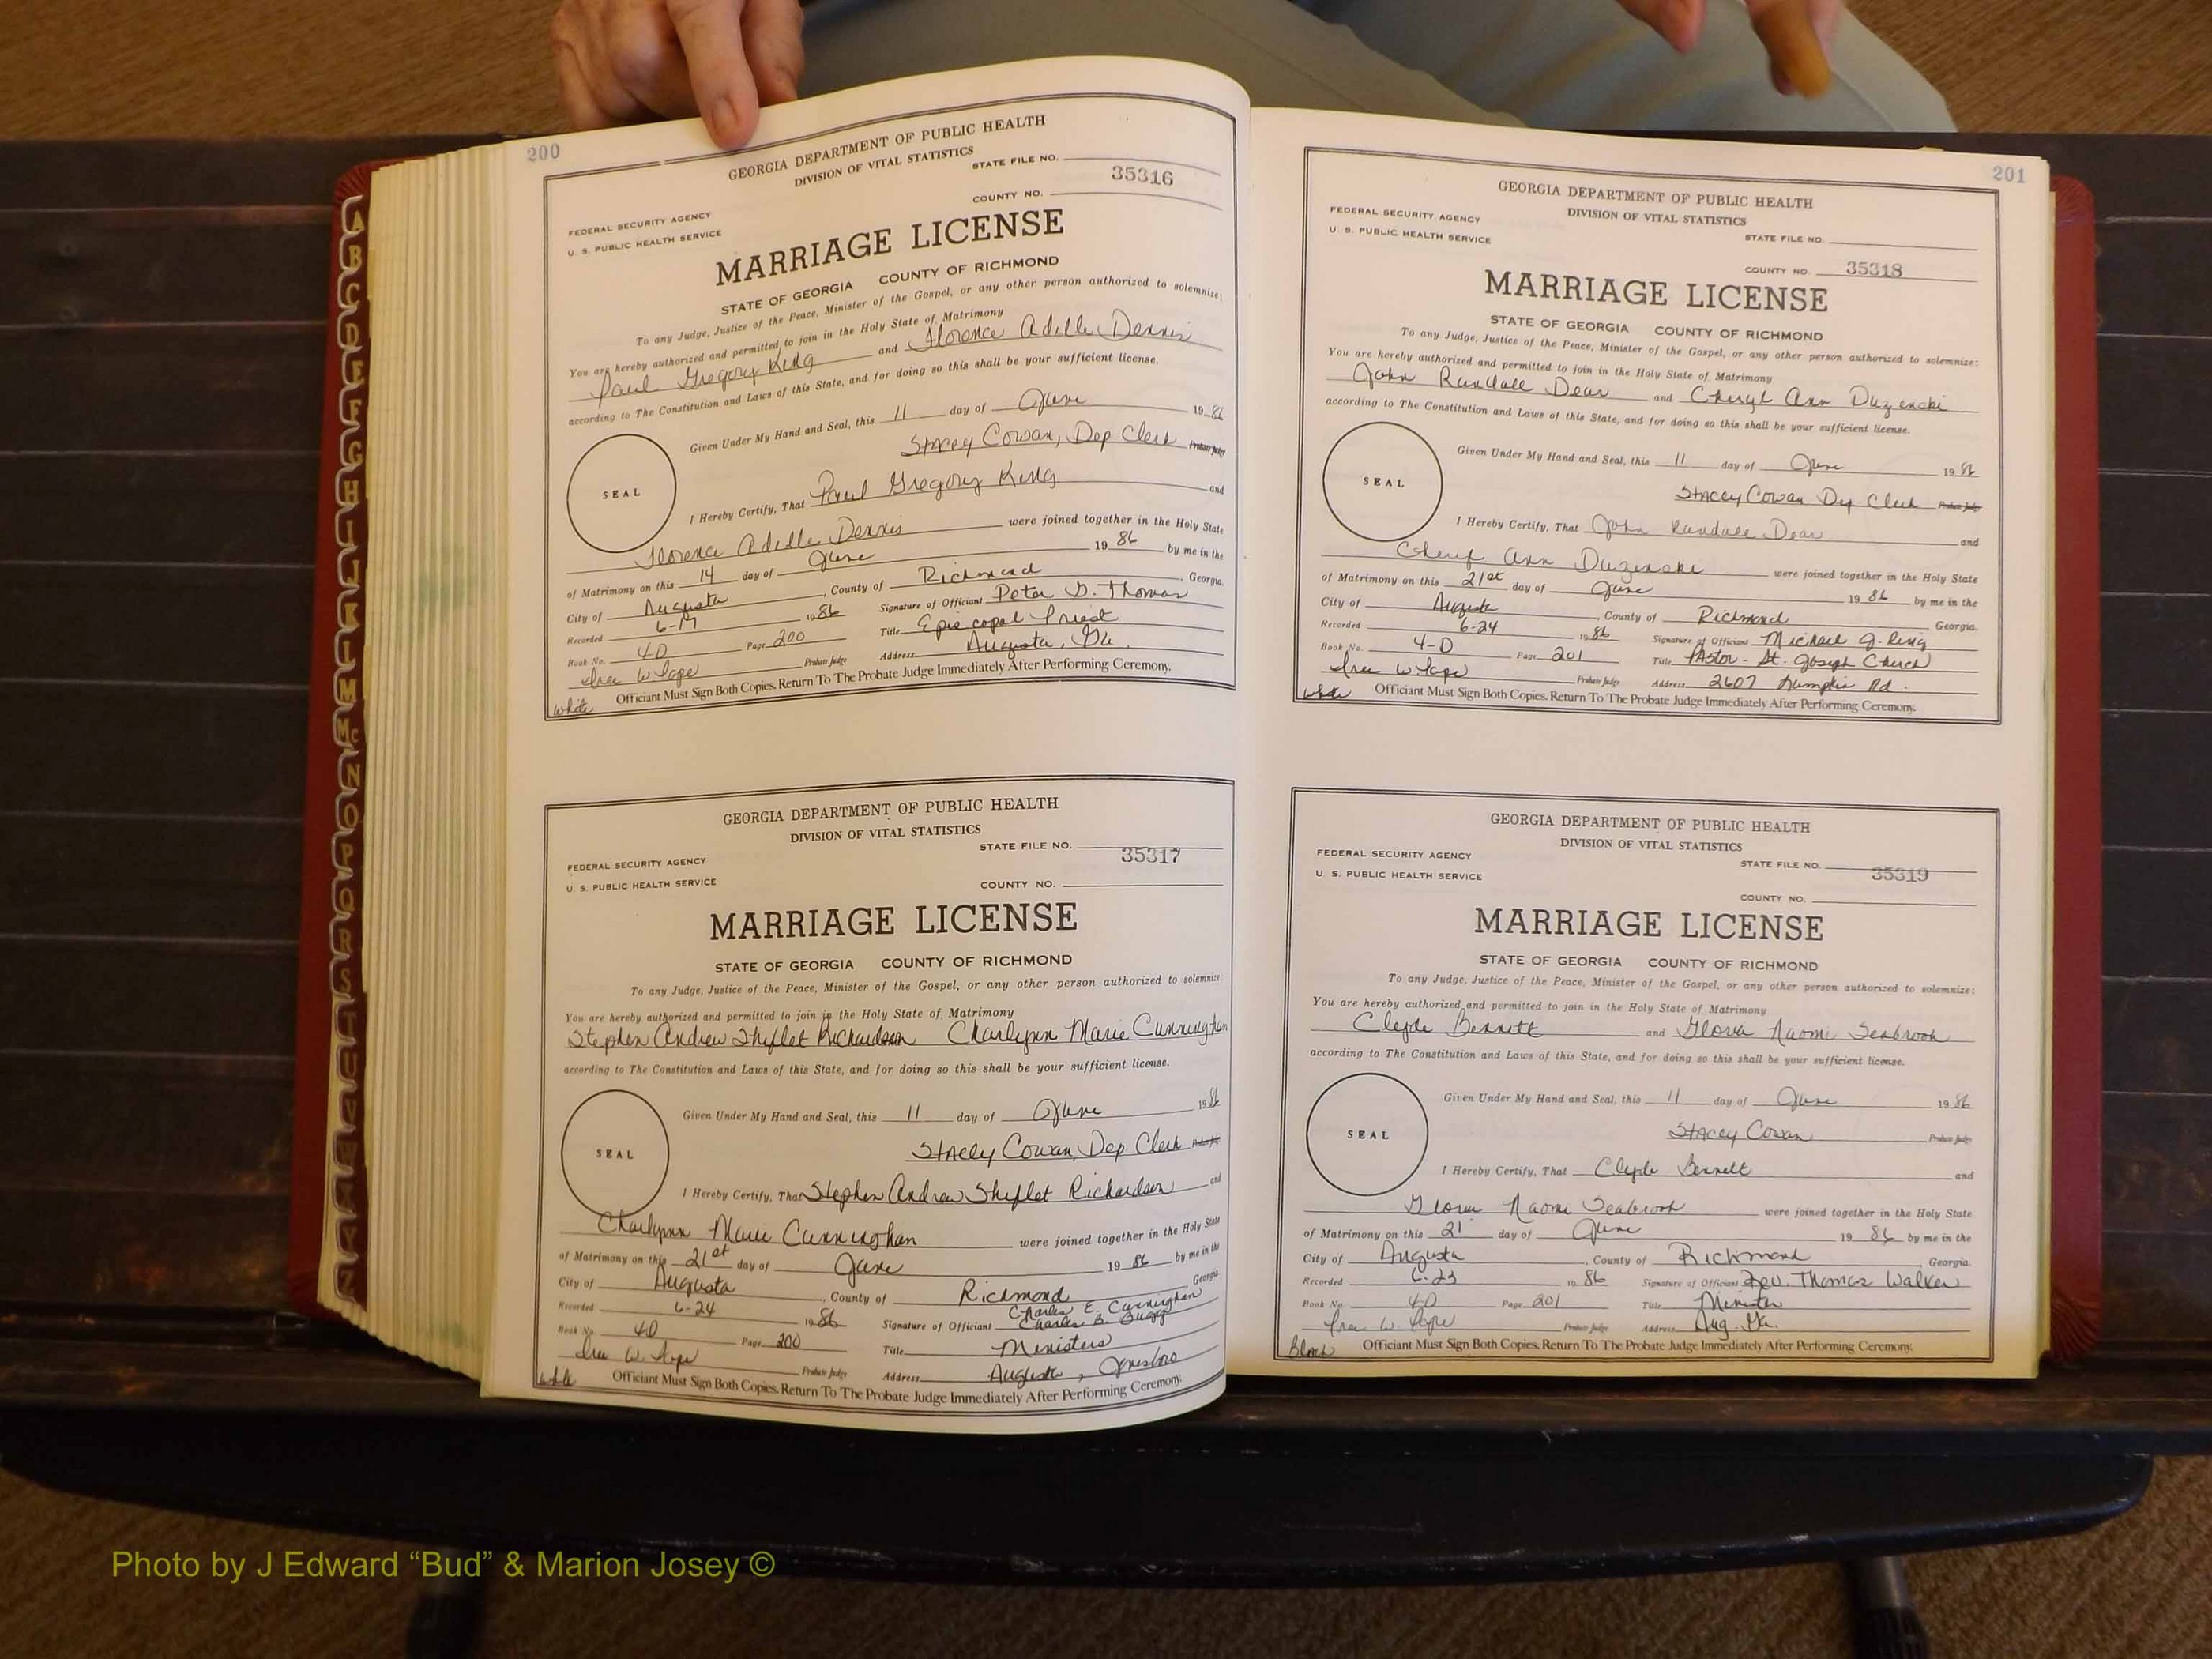 200
GEORGIA DEPARTMENT OF PUBLIC HEALTH
DIVISION OF VITAL STATISTICS
STATE FILE NO.
35316
COUNTY NO.
FEDERAL SECURITY AGENCY
U. S. PUBLIC HEALTH SERVICE
MARRIAGE LICENSE
STATE OF GEORGIA COUNTY OF RICHMOND
To any Judge, Justice of the Peace, Minister of the Gospel, or any other person authorized to solemnize:
You are hereby authorized and permitted to join in the Holy State of Matrimony
Paul Gregory King and Florence Adelle Dennis
according to The Constitution and Laws of this State, and for doing so this shall be your sufficient license.
Given Under My Hand and Seal, this 11 day of June 1986
Stacey Cowan, Dep Clerk Probate Judge
SEAL
I Hereby Certify, That Paul Gregory King and
Florence Adelle Dennis were joined together in the Holy State
of Matrimony on this 14 day of June 19 86 by me in the
City of Augusta, County of Richmond, Georgia.
Recorded 6-17 1986 Signature of Officiant Peter D. Thomas
Book No. 40 Page 200 Title Episcopal Priest
Probate Judge Address Augusta, Ga.
Officiant Must Sign Both Copies. Return To The Probate Judge Immediately After Performing Ceremony.
White
GEORGIA DEPARTMENT OF PUBLIC HEALTH
DIVISION OF VITAL STATISTICS
STATE FILE NO.
35317
FEDERAL SECURITY AGENCY
U. S. PUBLIC HEALTH SERVICE
COUNTY NO.
MARRIAGE LICENSE
STATE OF GEORGIA COUNTY OF RICHMOND
To any Judge, Justice of the Peace, Minister of the Gospel, or any other person authorized to solemnize:
You are hereby authorized and permitted to join in the Holy State of Matrimony
Stephen Andrew Shiflet Richardson Charlynn Marie Cunningham
according to The Constitution and Laws of this State, and for doing so this shall be your sufficient license.
Given Under My Hand and Seal, this 11 day of June 1986
Stacey Cowan, Dep Clerk Probate Judge
SEAL
I Hereby Certify, That Stephen Andrew Shiflet Richardson and
Charlynn Marie Cunningham were joined together in the Holy State
of Matrimony on this 21st day of June 19 86 by me in the
City of Augusta, County of Richmond Georgia
Recorded 6-24 1986 Signature of Officiant Charles E. Cunningham
Charles B. Bugg
Book No. 40 Page 200 Title Ministers
Probate Judge Address Augusta, Jonesboro
white Officiant Must Sign Both Copies. Return To The Probate Judge Immediately After Performing Ceremony.
201
GEORGIA DEPARTMENT OF PUBLIC HEALTH
DIVISION OF VITAL STATISTICS
FEDERAL SECURITY AGENCY
U. S. PUBLIC HEALTH SERVICE
STATE FILE NO.
COUNTY NO. 35318
MARRIAGE LICENSE
STATE OF GEORGIA COUNTY OF RICHMOND
To any Judge, Justice of the Peace, Minister of the Gospel, or any other person authorized to solemnize:
You are hereby authorized and permitted to join in the Holy State of Matrimony
John Randall Dear and Cheryl Ann Duzenski
according to The Constitution and Laws of this State, and for doing so this shall be your sufficient license.
Given Under My Hand and Seal, this 11 day of June 1986
Stacey Cowan Dep Clerk Probate Judge
SEAL
I Hereby Certify, That John Randall Dear and
Cheryl Ann Duzenski were joined together in the Holy State
of Matrimony on this 21st day of June 1986 by me in the
City of Augusta, County of Richmond Georgia.
Recorded 6-24 1986 Signature of Officiant Michael J.
Book No. 4-0 Page 201 Title Pastor - St. Joseph Church
Probate Judge Address 2607 Lumpkin Rd.
white Officiant Must Sign Both Copies. Return To The Probate Judge Immediately After Performing Ceremony.
GEORGIA DEPARTMENT OF PUBLIC HEALTH
DIVISION OF VITAL STATISTICS
FEDERAL SECURITY AGENCY
U. S. PUBLIC HEALTH SERVICE
STATE FILE NO.
35319
COUNTY NO.
MARRIAGE LICENSE
STATE OF GEORGIA COUNTY OF RICHMOND
To any Judge, Justice of the Peace, Minister of the Gospel, or any other person authorized to solemnize:
You are hereby authorized and permitted to join in the Holy State of Matrimony
Clyde Bennett and Gloria Naomi Seabrook
according to The Constitution and Laws of this State, and for doing so this shall be your sufficient license.
Given Under My Hand and Seal, this 11 day of June 1986
Stacey Cowan Probate Judge
SEAL
I Hereby Certify, That Clyde Bennett and
Gloria Naomi Seabrook were joined together in the Holy State
of Matrimony on this 21 day of June 19 86 by me in the
City of Augusta, County of Richmond Georgia.
Recorded 6-23 1986 Signature of Officiant Rev. Thomas Walker
Book No. 40 Page 201 Title Minister
Probate Judge Address Aug. Ga.
Black Officiant Must Sign Both Copies. Return To The Probate Judge Immediately After Performing Ceremony.
A
B
C
D
E
F
G
H
I
J
K
L
M
Mc
N
O
P
Q
R
S
T
U
V
Photo by J Edward “Bud” & Marion Josey ©